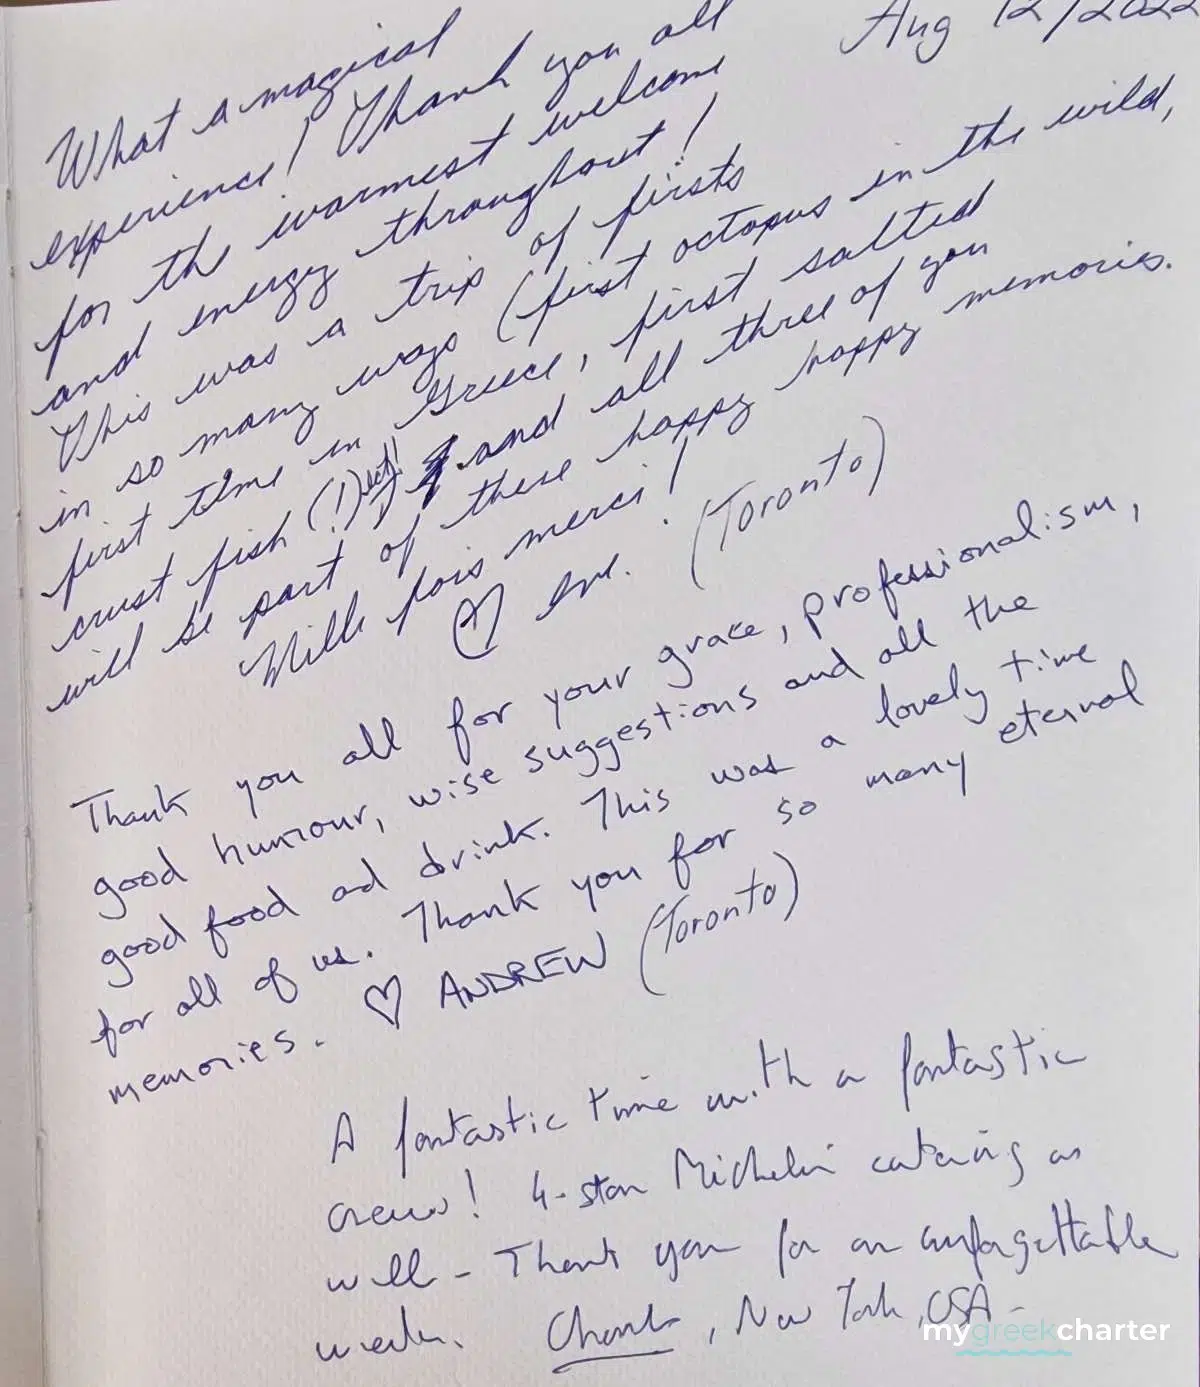 Aug 12/2022
What a magical
experience! Thank you all
for the warmest welcome
and energy throughout!
This was a trip of firsts
in so many ways (first octopus in the wild,
first time in Greece, first salted
crust fish (!) and all three of you
will be part of these happy happy memories.
Mille fois merci!
♡ Eve. (Toronto)
Thank you all for your grace, professionalism,
good humour, wise suggestions and all the
good food ad drink. This was a lovely time
for all of us. Thank you for so many eternal
memories. ♡ ANDREW (Toronto)
A fantastic time with a fantastic
crew! 4-star Michelin catering as
well - Thank you for an unforgettable
week. , New York, USA -
mygreekcharter